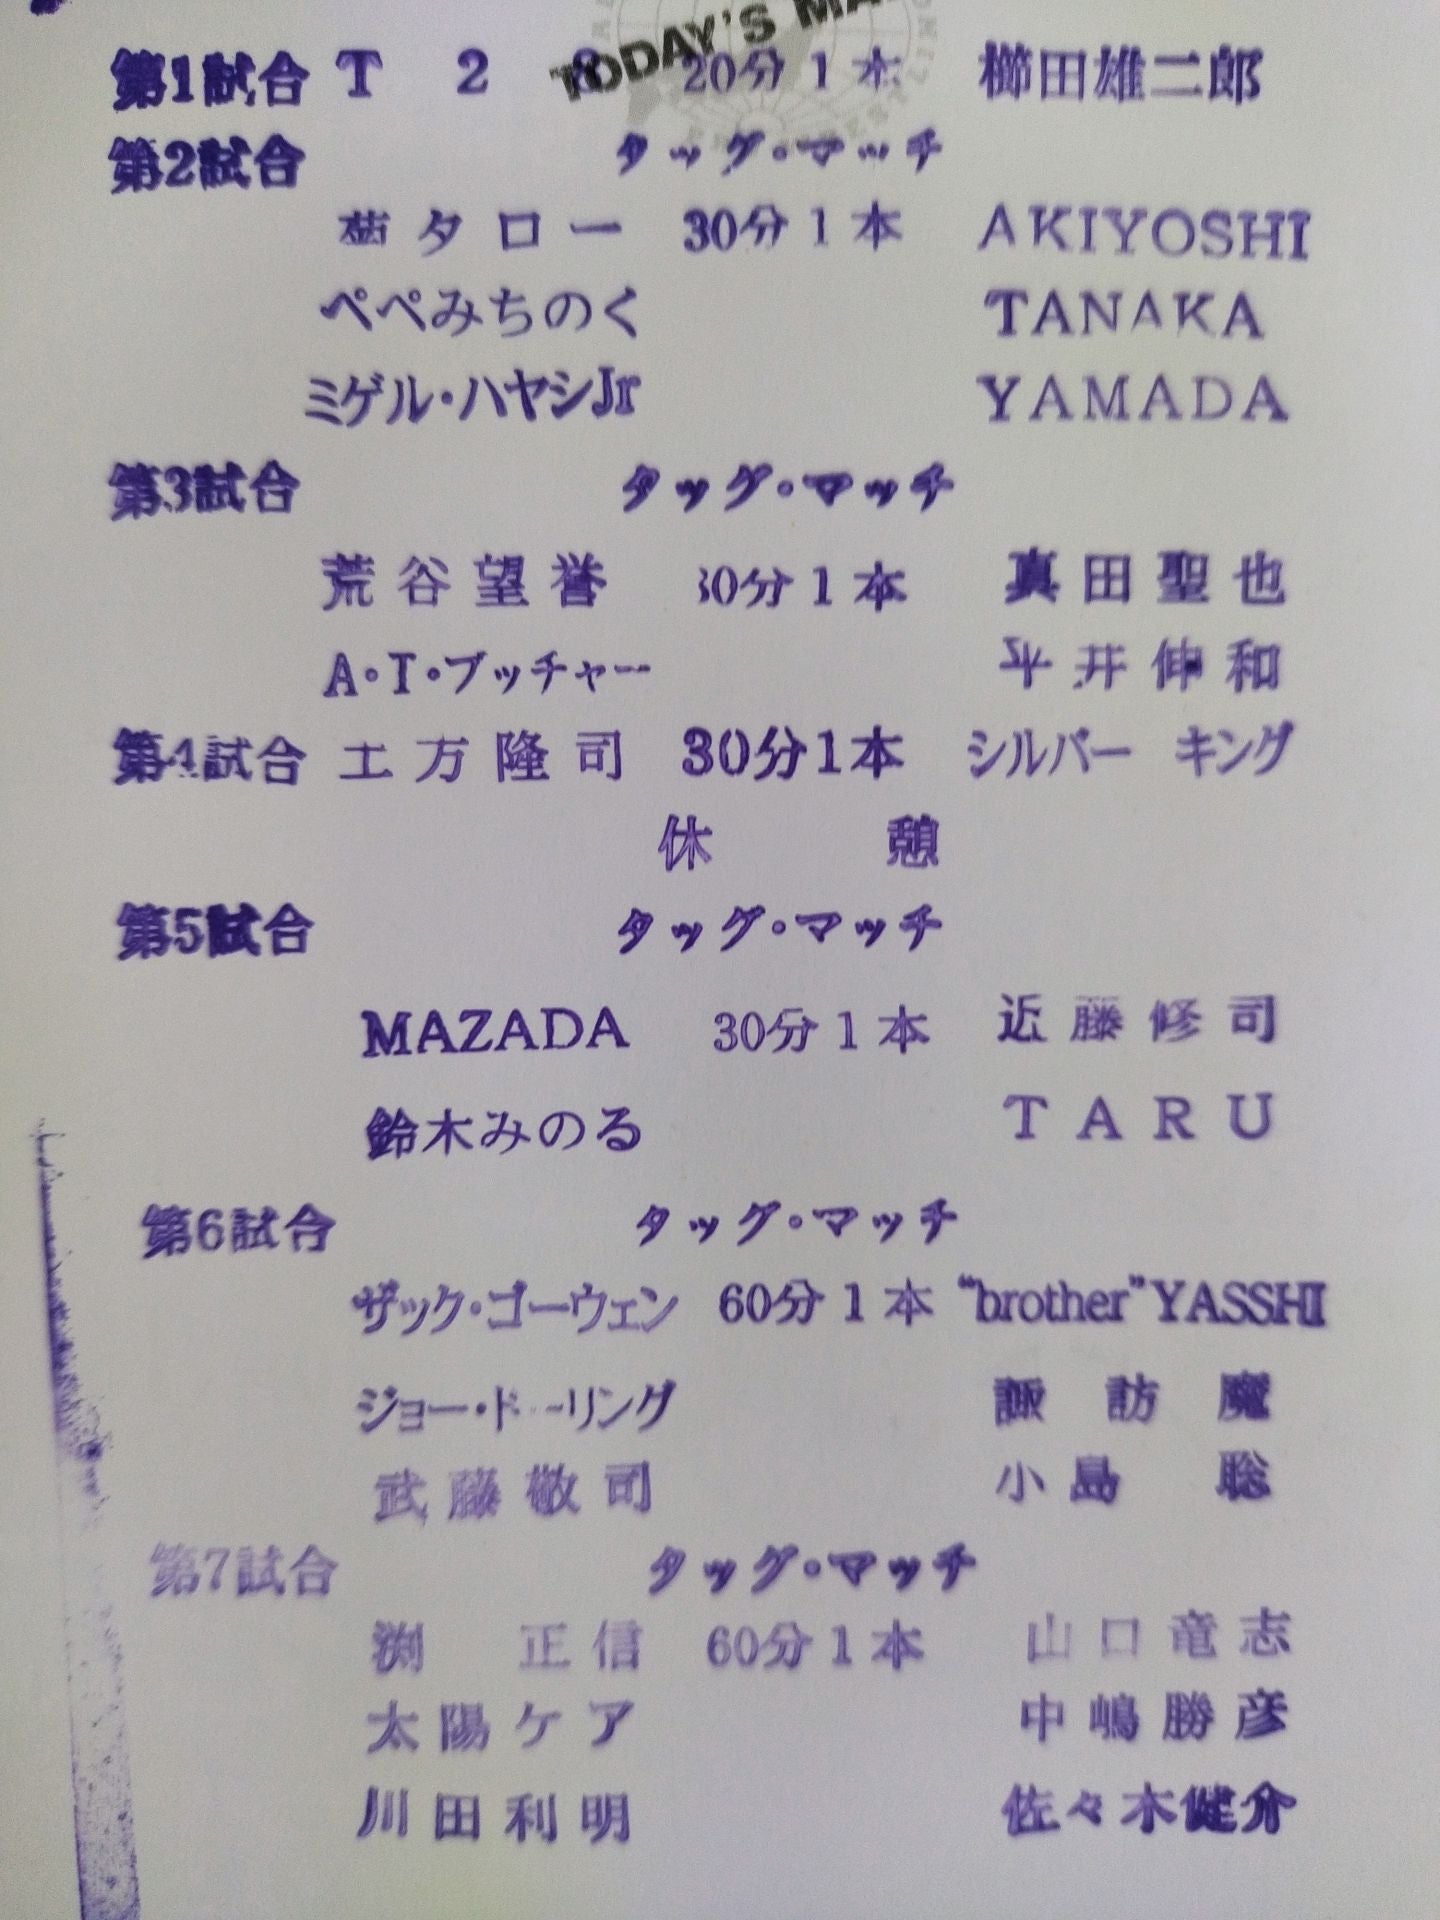 TODAY'S MA
第1試合 T 2 8 20分1本 櫛田雄二郎
第2試合 タッグ・マッチ
菊タロー 30分1本 AKIYOSHI
ペペみちのく TANAKA
ミゲル・ハヤシJr YAMADA
第3試合 タッグ・マッチ
荒谷望誉 30分1本 真田聖也
A・T・ブッチャー 平井伸和
第4試合 土方隆司 30分1本 シルバー キング
休 憩
第5試合 タッグ・マッチ
MAZADA 30分1本 近藤修司
鈴木みのる TARU
第6試合 タッグ・マッチ
ザック・ゴーウェン 60分1本 “brother”YASSHI
ジョー・ドーリング 諏訪魔
武藤敬司 小島 聡
第7試合 タッグ・マッチ
渕 正信 60分1本 山口竜志
太陽ケア 中嶋勝彦
川田利明 佐々木健介